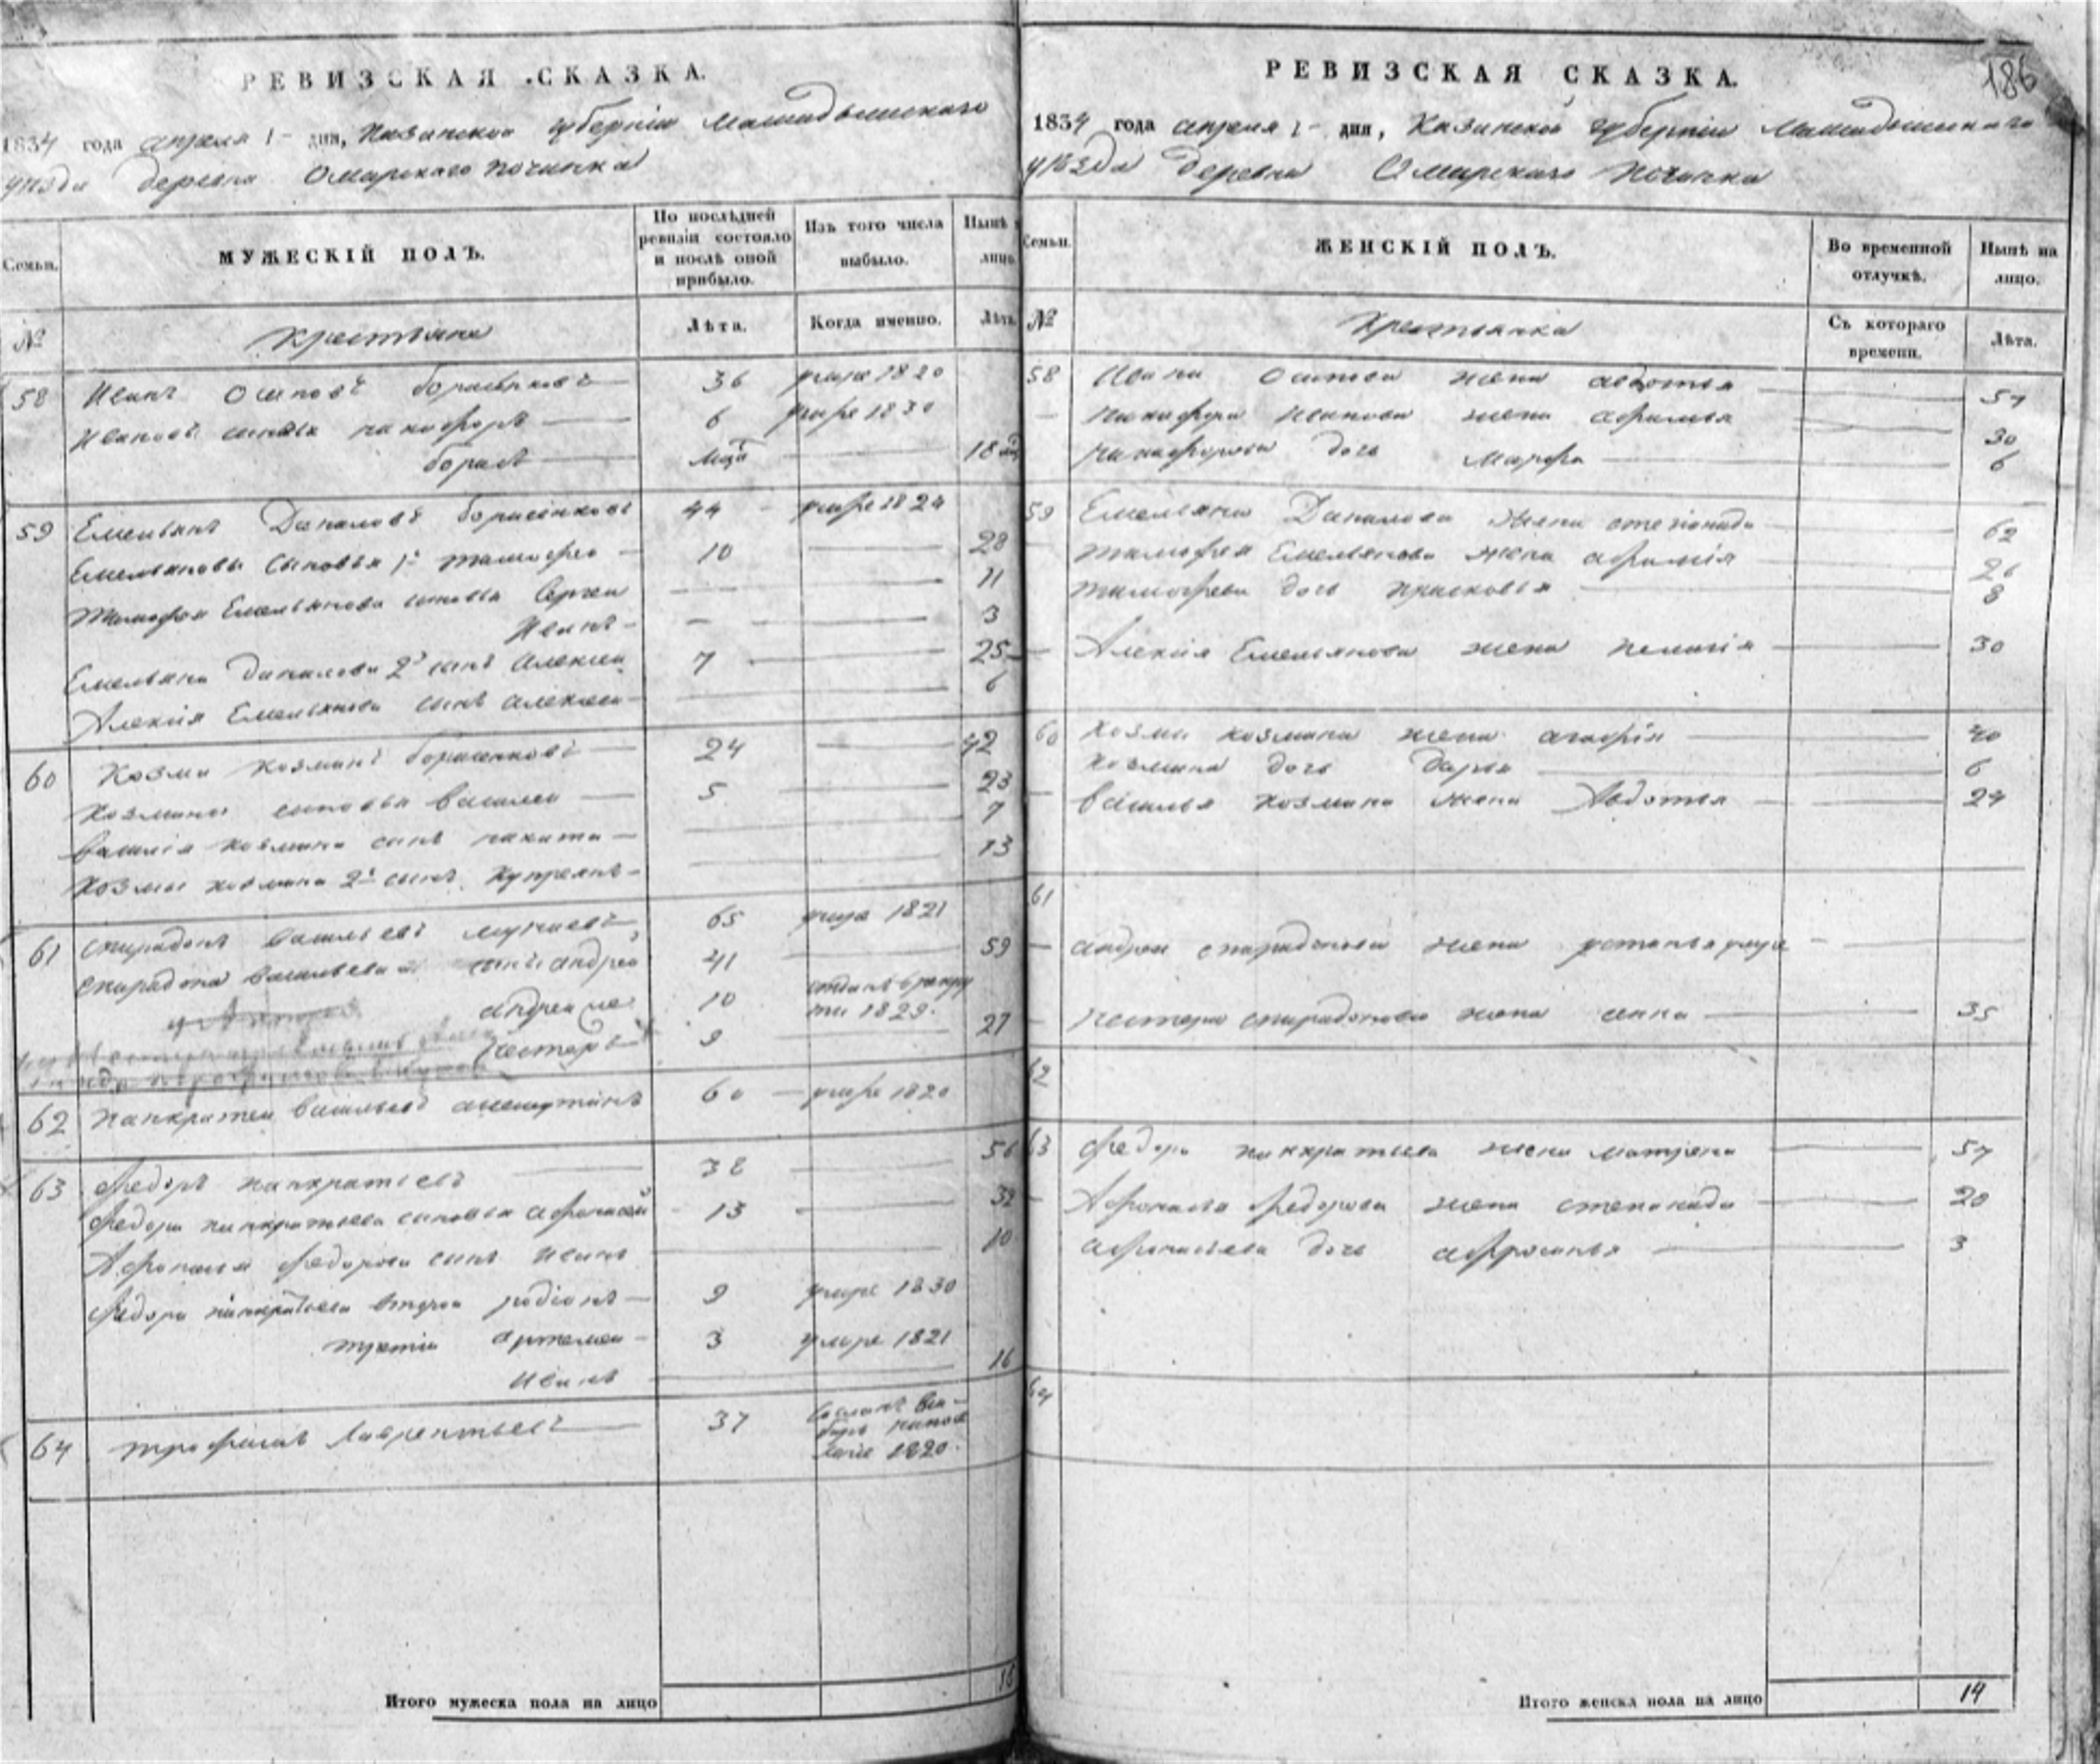 РЕВИЗСКАЯ СКАЗКА.
1834 года апреля 1 дня, Казанской губерніи Мамадышскаго
уѣзда деревни Омарскаго починка
Семьи.
МУЖЕСКІЙ ПОЛЪ.
По послѣдней ревизіи состояло и послѣ оной прибыло.
Изъ того числа выбыло.
Нынѣ на лицо.
№
Крестьяне
Лѣта.
Когда именно.
Лѣта.
58 Иванъ Осиповъ Борисенковъ 36 умре 1820
Ивановы сыновья Никифоръ 6 умре 1830
Борисъ 18
59 Емельянъ Даниловъ Борисенковъ 44 умре 1824
Емельяновы сыновья 1й Тимофей 10 28
Тимофея Емельянова сыновья Сергей 11
Иванъ 3
Емельяна Данилова 2й сынъ Алексей 7 25
Алексія Емельянова сынъ Алексей 6
60 Козма Козминъ Борисенковъ 24 42
Козмины сыновья Василей 5 23
Василія Козмина сынъ Никита 7
Козмы Козмина 2й сынъ Купреянъ 13
61 Спиридонъ Васильевъ 65 умре 1821
Спиридона Васильева сынъ Андрей 41 59
Андреяне 10 отданъ в рекру
ты 1829.
Нестеръ 9 27
62 Панкратей Васильевъ 60 умре 1820
63 Федоръ Панкратьевъ 38 56
Федора Панкратьева сыновья Афонасей 13 32
Афонасья Федорова сынъ Иванъ 10
Федора Панкратьева второй Родіонъ 9 умре 1830
третій Артемей 3 умре 1821
Иванъ 16
64 Трофимъ Лаврентьевъ 37 Сосланъ в Си-
бирь на посе
леніе 1820.
Итого мужеска пола на лицо 15
186
РЕВИЗСКАЯ СКАЗКА.
1834 года апреля 1 дня, Казанской губерніи Мамадышскаго
уѣзда деревни Омарскаго починка
Семьи.
ЖЕНСКІЙ ПОЛЪ.
Во временной отлучкѣ.
Нынѣ на лицо.
№
Крестьянка
Съ котораго времени.
Лѣта.
58 Ивана Осипова жена Авдотья 54
Никифора Иванова жена Афимья 30
Никифорова дочь Марфа 6
59 Емельяна Данилова жена Степонида 62
Тимофея Емельянова жена Афимія 26
Тимофеева дочь Прасковья 8
Алексія Емельянова жена Пелагія 30
60 Козмы Козмина жена Агафія 40
Козмина дочь Дарья 6
Василья Козмина жена Авдотья 24
61
Андрея Спиридонова жена Устинья умре
Нестера Спиридонова жена Анна 35
62
63 Федора Панкратьева жена Матрена 54
Афонасья Федорова жена Степонида 20
Афонасьева дочь Афросинья 3
64
Итого женска пола на лицо 14